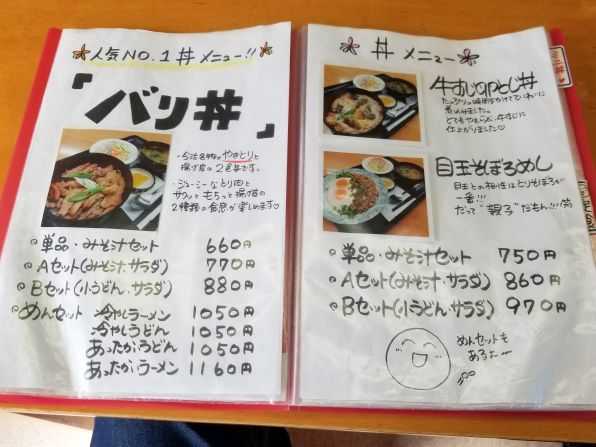 人気NO.1 丼 メニュー!!
「バリ丼」
・今治名物のやきとりと
揚げ皮の2色丼です。
・ジューシーなとり肉と
サクッともちっと揚げ皮の
2種類の食感が楽しめます♡
単品・みそ汁セット 660円
Aセット(みそ汁・サラダ) 770円
Bセット(小うどん・サラダ) 880円
めんセット 冷やしラーメン 1050円
冷やしうどん 1050円
あったかうどん 1050円
あったかラーメン 1160円
丼 メニュー
牛すじのたまとじ丼
煮込みました。
とてもやわらかい牛すじに
仕上がりました♡
目玉そぼろめし
目玉との相性はとりそぼろが
一番!!!
だって"親子"だもん!!(笑)
単品・みそ汁セット 750円
Aセット(みそ汁・サラダ) 860円
Bセット(小うどん・サラダ) 970円
めんセットも
あるよー